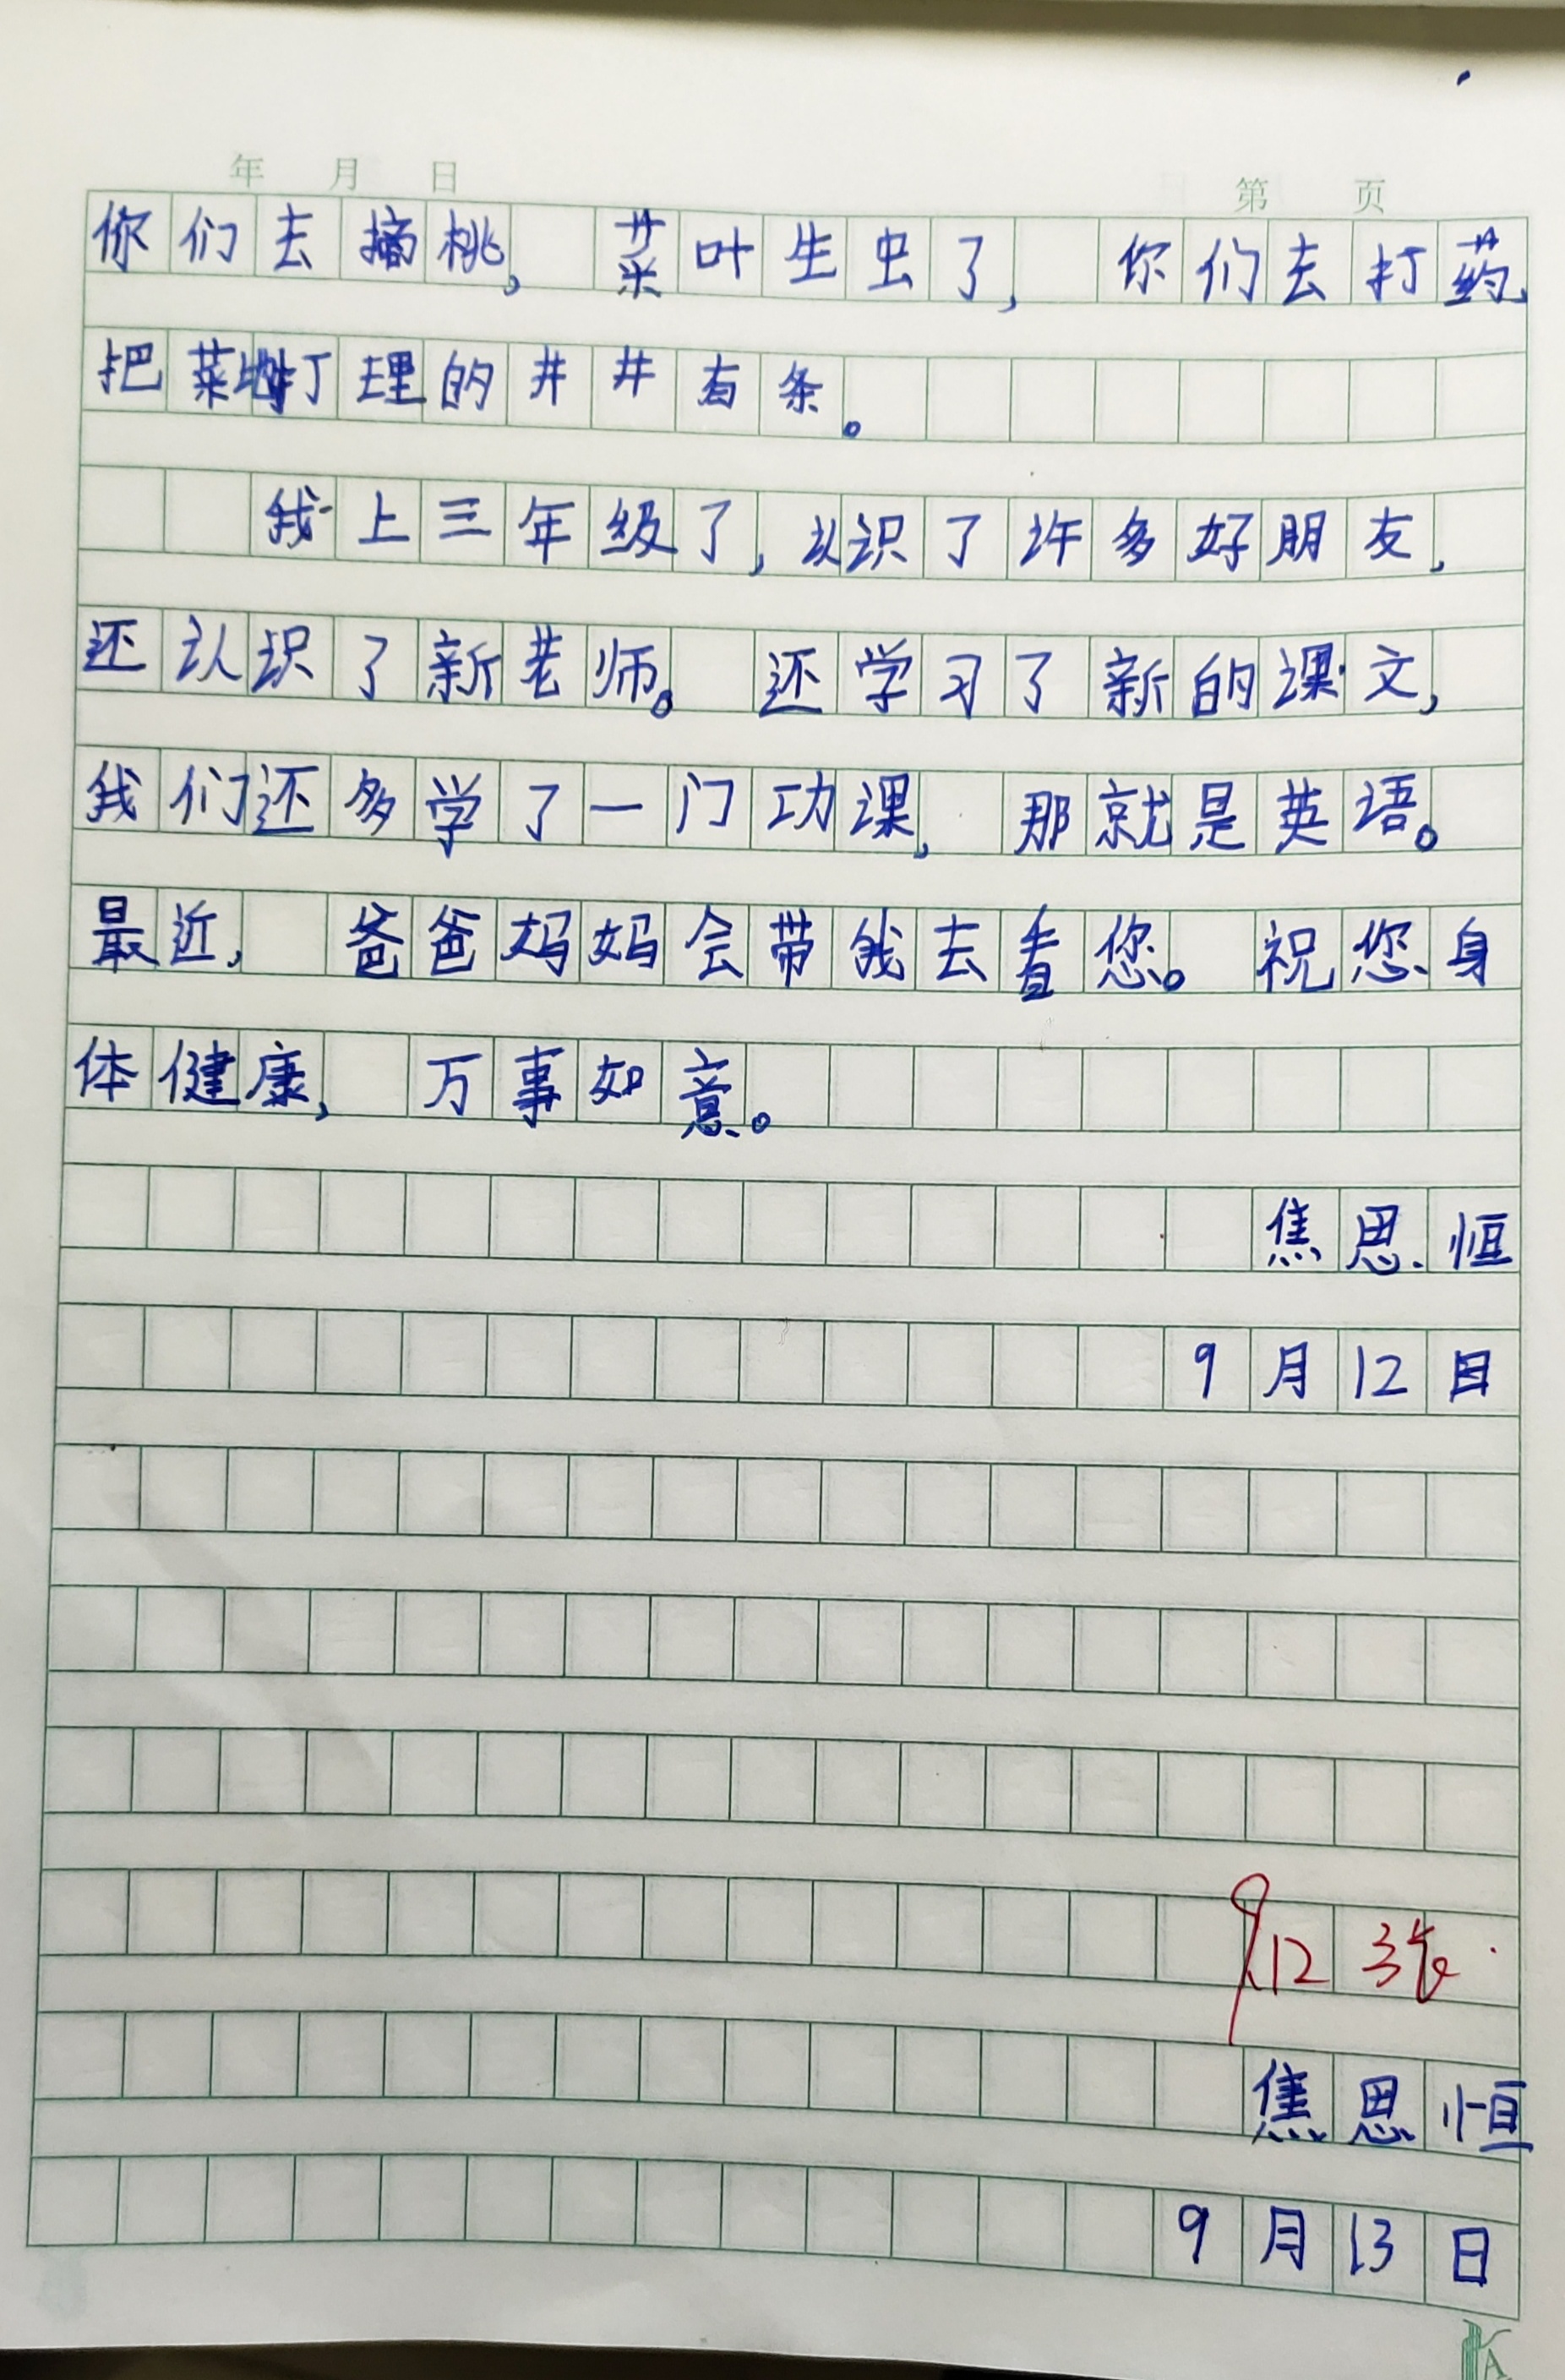 年 月 日 第 页
你们去摘桃，菜叶生虫了，你们去打药，
把菜地打理的井井有条。
我上三年级了，认识了许多好朋友，
还认识了新老师。还学习了新的课文，
我们还多学了一门功课，那就是英语。
最近，爸爸妈妈会带我去看您。祝您身
体健康，万事如意。
焦思恒
9月12日
9.12
焦思恒
9月13日